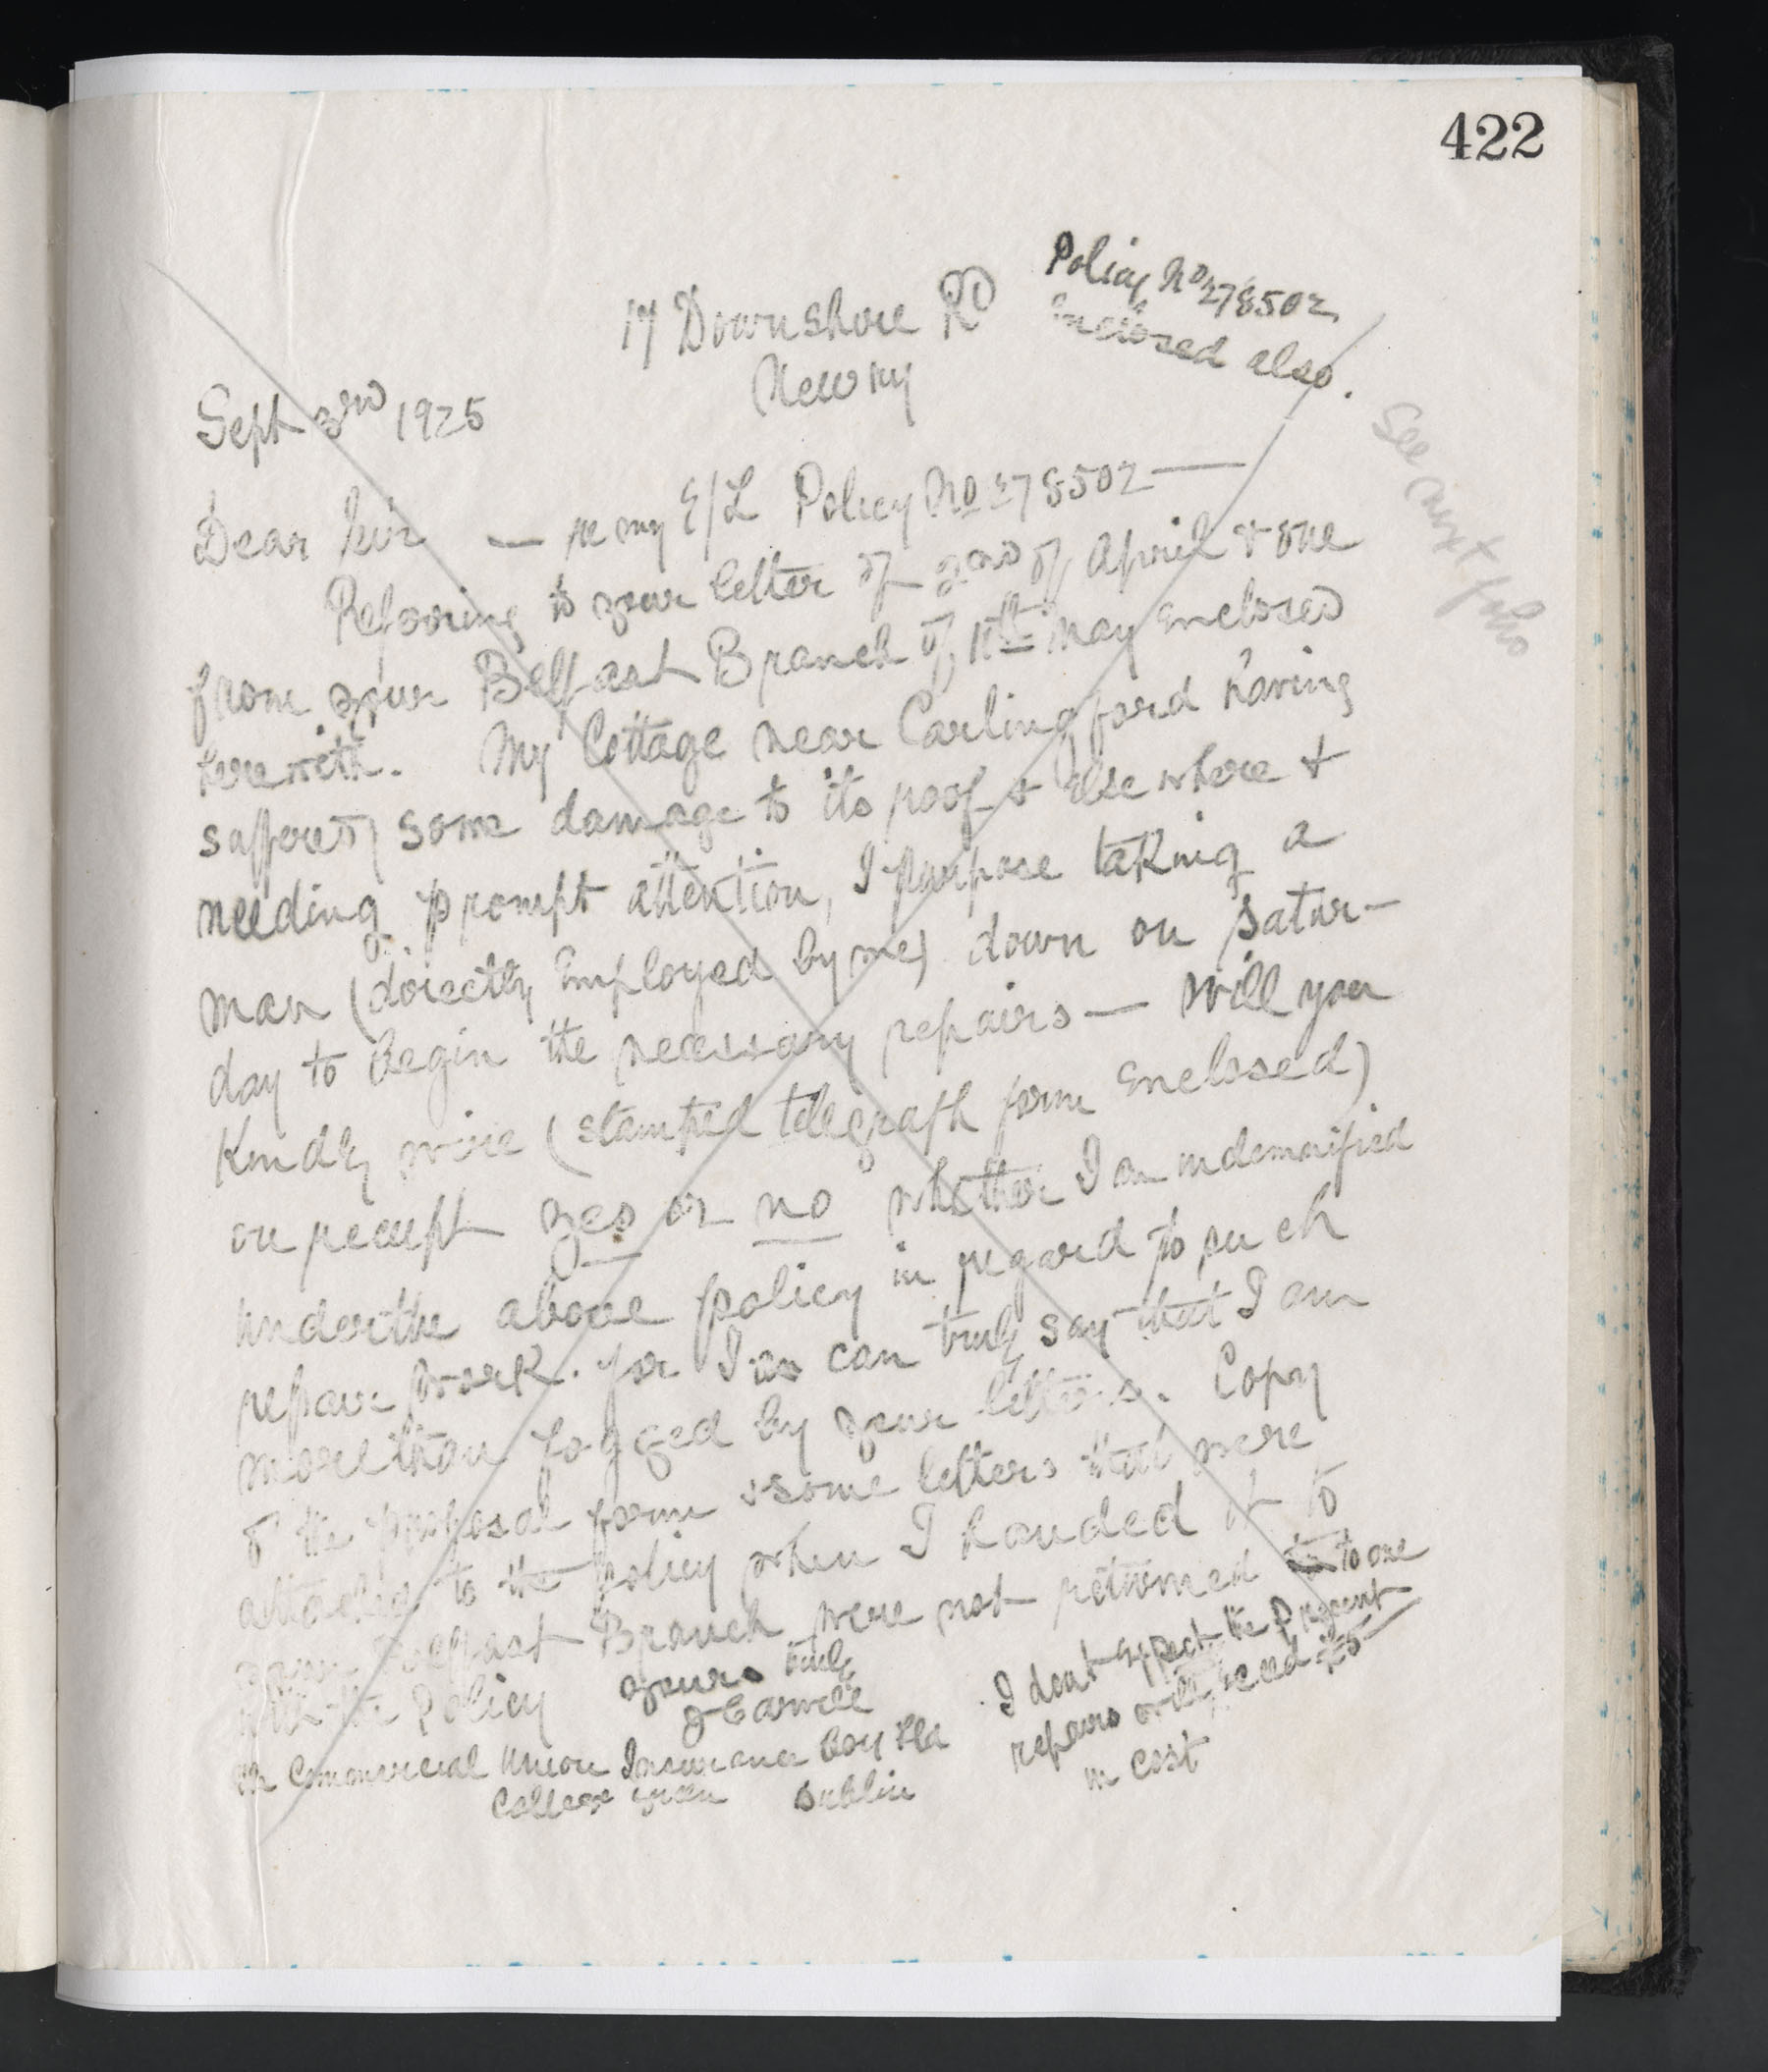 422
Policy No 278502
Enclosed also.
17 Downshire Rd
Newry
Sept 3rd 1925
See next folio
Dear Sir — re my E/L Policy No 278502 —
Referring to your letter of 2nd of April & one
from your Belfast Branch of 11th May enclosed
herewith. My Cottage near Carlingford having
suffered some damage to its roof & elsewhere &
needing prompt attention, I purpose taking a
man (directly employed by me) down on Satur-
day to begin the necessary repairs — Will you
Kindly wire (stamped telegraph form enclosed)
on receipt yes or no whether I am indemnified
under the above policy in regard to such
repair work. For I can truly say that I am
more than fogged by your letters. Copy
of the proposal form & some letters that were
attached to the policy when I handed it to
your Belfast Branch were not returned to me
with the Policy
yours truly
The Commercial Union Insurance Coy Ltd
College Green Dublin
I dont expect the present
repairs will exceed £5
in cost